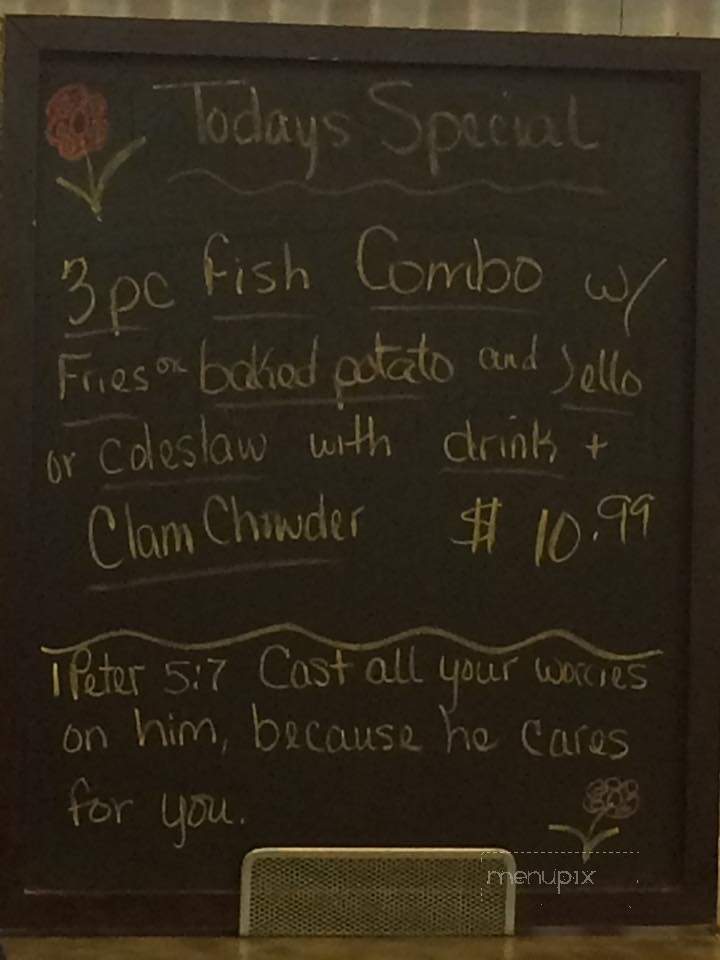 Todays Special
3pc Fish Combo w/
Fries or baked potato and Jello
or coleslaw with drink +
Clam Chowder $ 10.99
1 Peter 5:7 Cast all your worries
on him, because he cares
for you.
menupix